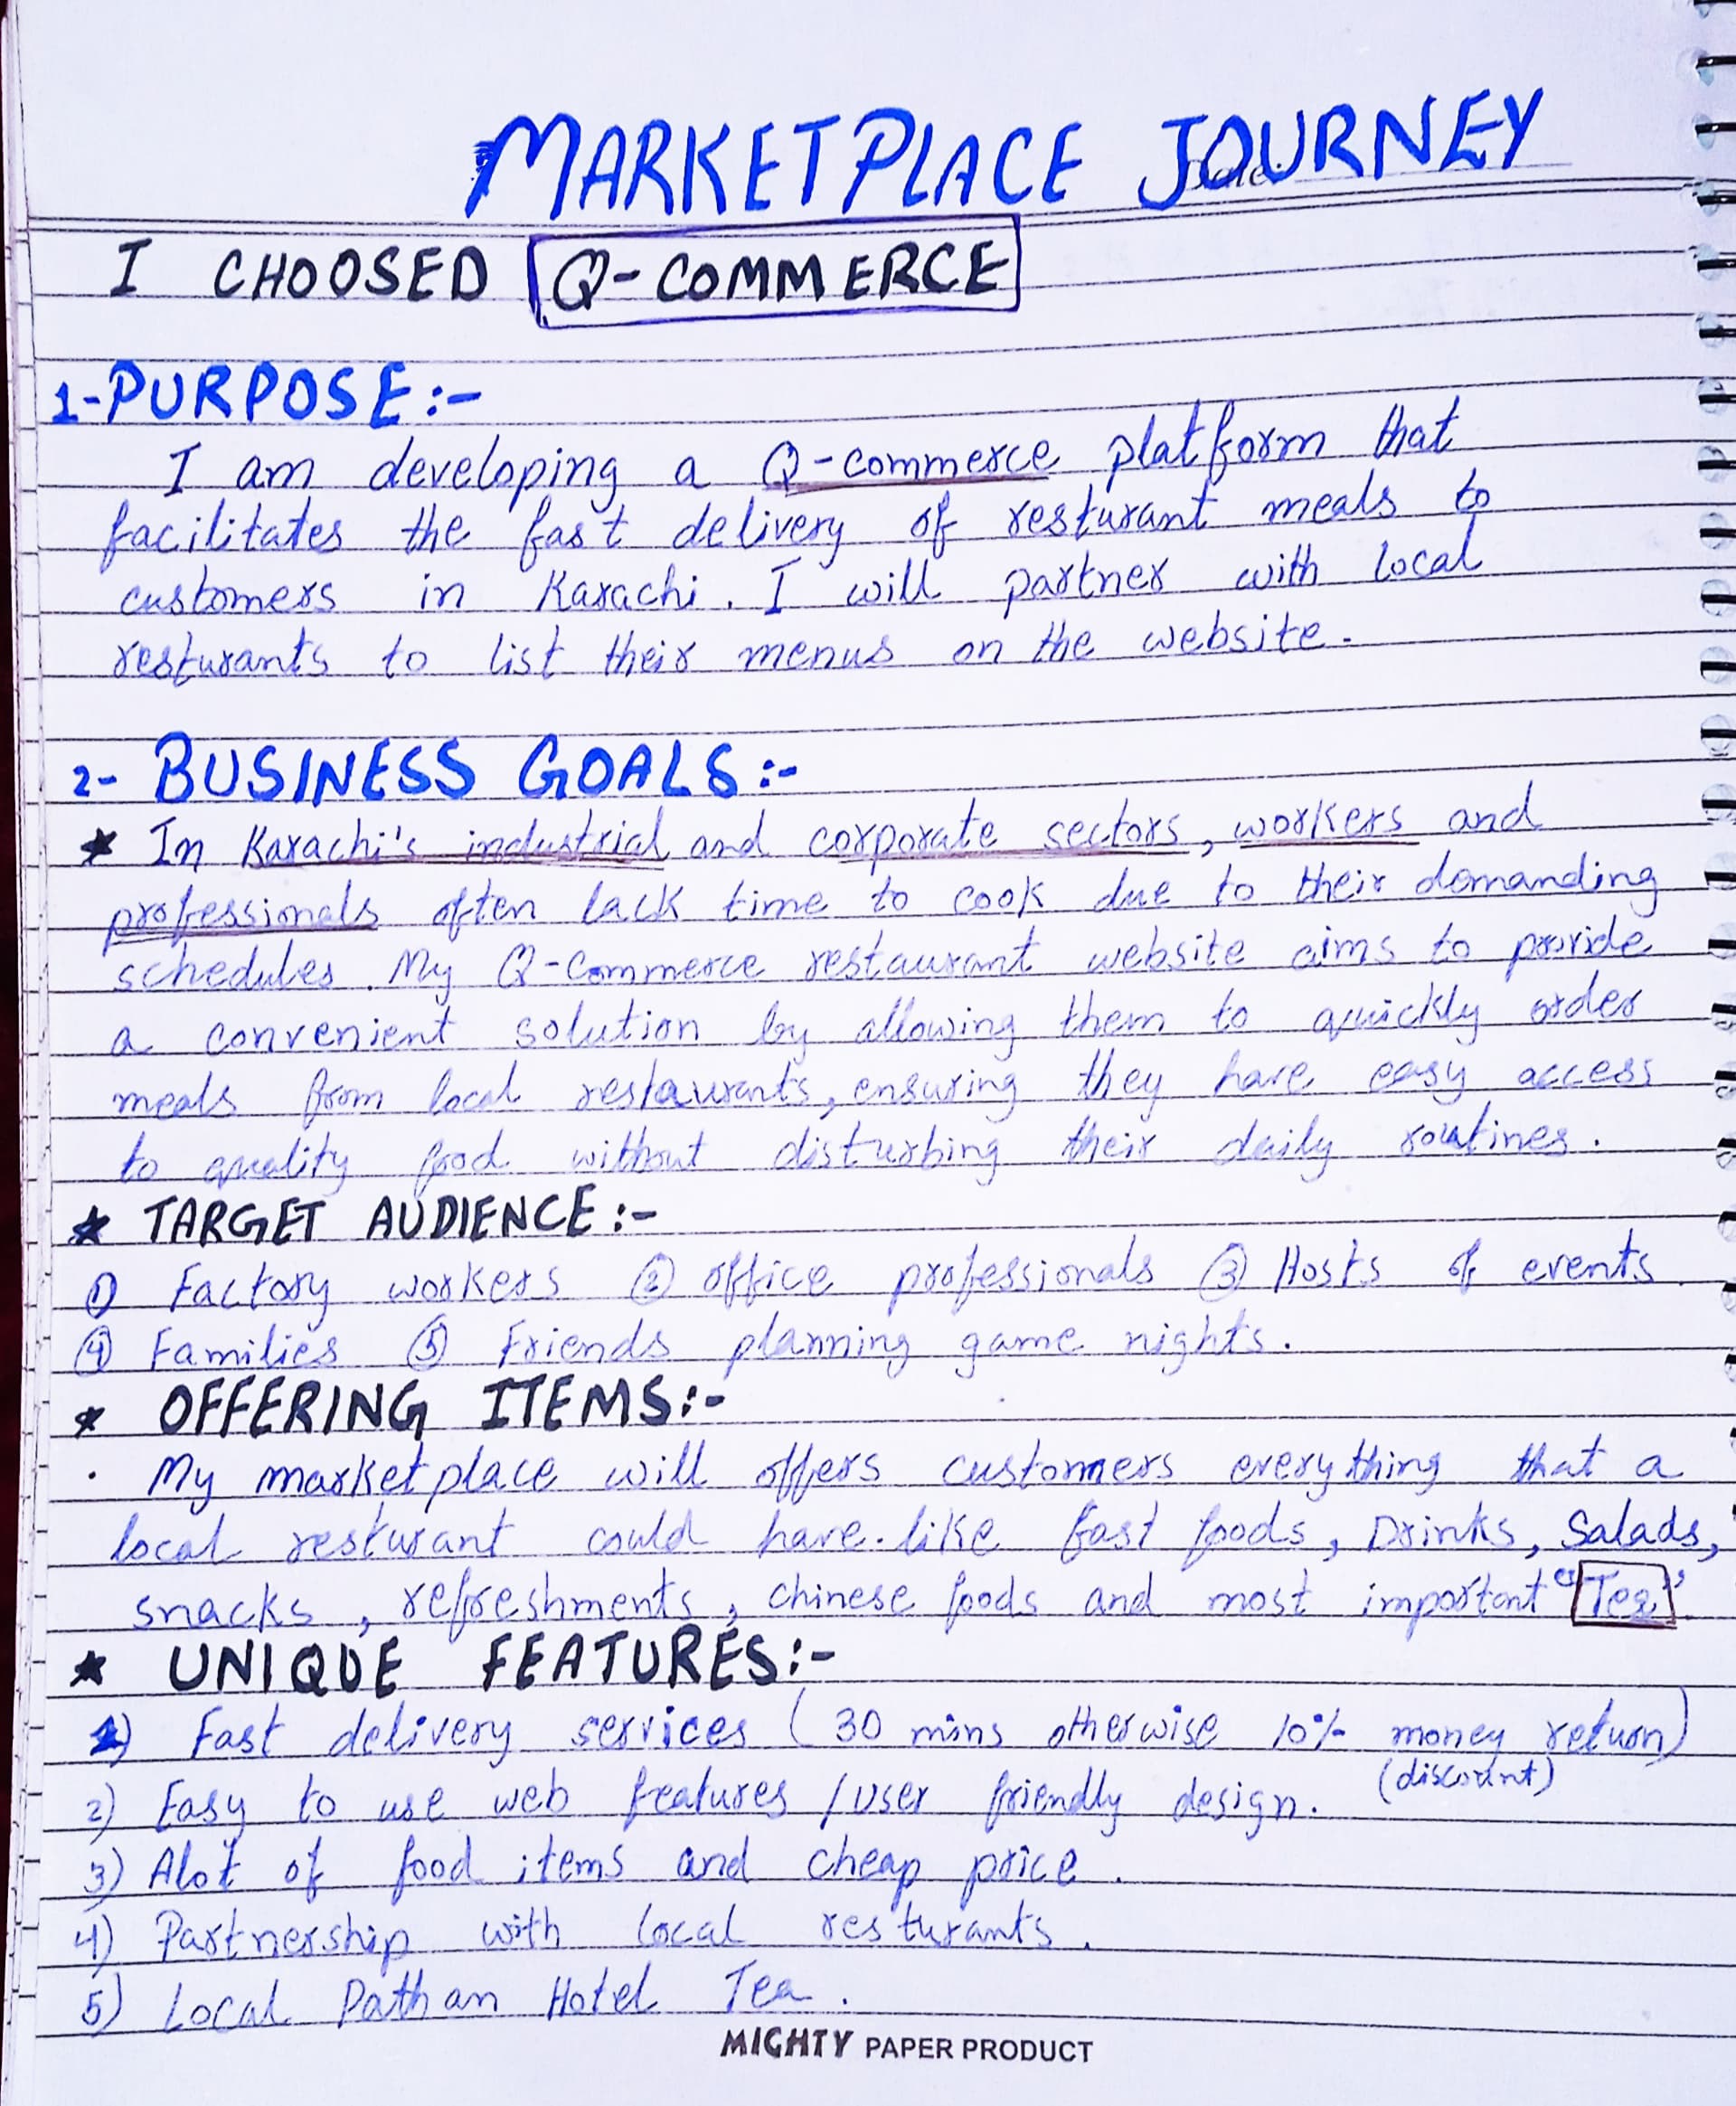 MARKETPLACE JOURNEY
I CHOOSED Q-COMMERCE
1-PURPOSE:-
I am developing a Q-commerce platform that
facilitates the fast delivery of resturant meals to
customers in Karachi. I will partner with local
resturants to list their menus on the website.
2- BUSINESS GOALS:-
★ In Karachi's industrial and corporate sectors, workers and
professionals often lack time to cook due to their demanding
schedules. My Q-Commerce restaurant website aims to provide
a convenient solution by allowing them to quickly order
meals from local restaurants, ensuring they have easy access
to quality food without disturbing their daily routines.
★ TARGET AUDIENCE:-
① Factory workers ② office professionals ③ Hosts of events
④ Families ⑤ Friends planning game nights.
★ OFFERING ITEMS:-
· My marketplace will offers customers everything that a
local resturant could have. like fast foods, Drinks, Salads,
snacks, refreshments, chinese foods and most important "Tea".
★ UNIQUE FEATURES:-
1) Fast delivery services (30 mins otherwise 10% money return)
(discount)
2) Easy to use web features / user friendly design.
3) Alot of food items and cheap price.
4) Partnership with local resturants.
5) Local Pathan Hotel Tea.
MIGHTY PAPER PRODUCT